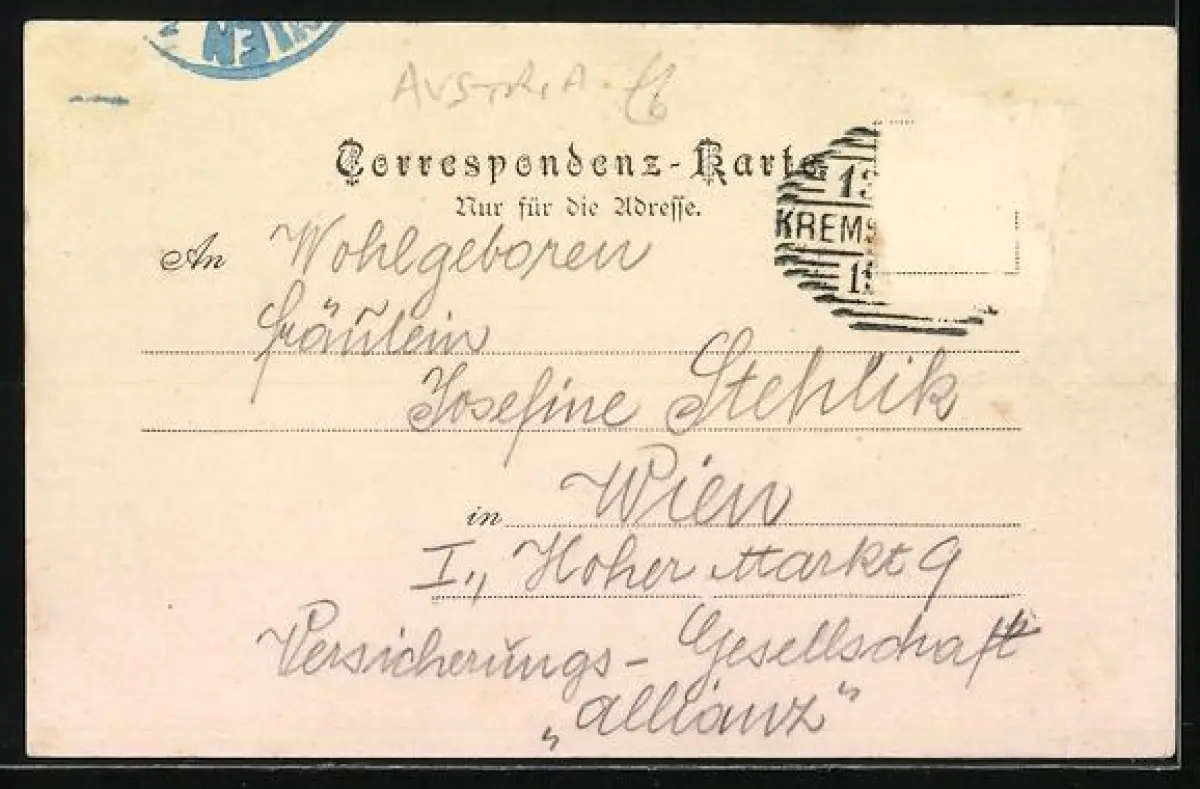 IEN
AUSTRIA
Correspondenz-Karte
Nur für die Adresse.
13
KREMS
An Wohlgeboren
Fräulein
Josefine Stehlik
in Wien
I., Hoher Markt 9
Versicherungs-Gesellschaft
„Allianz“